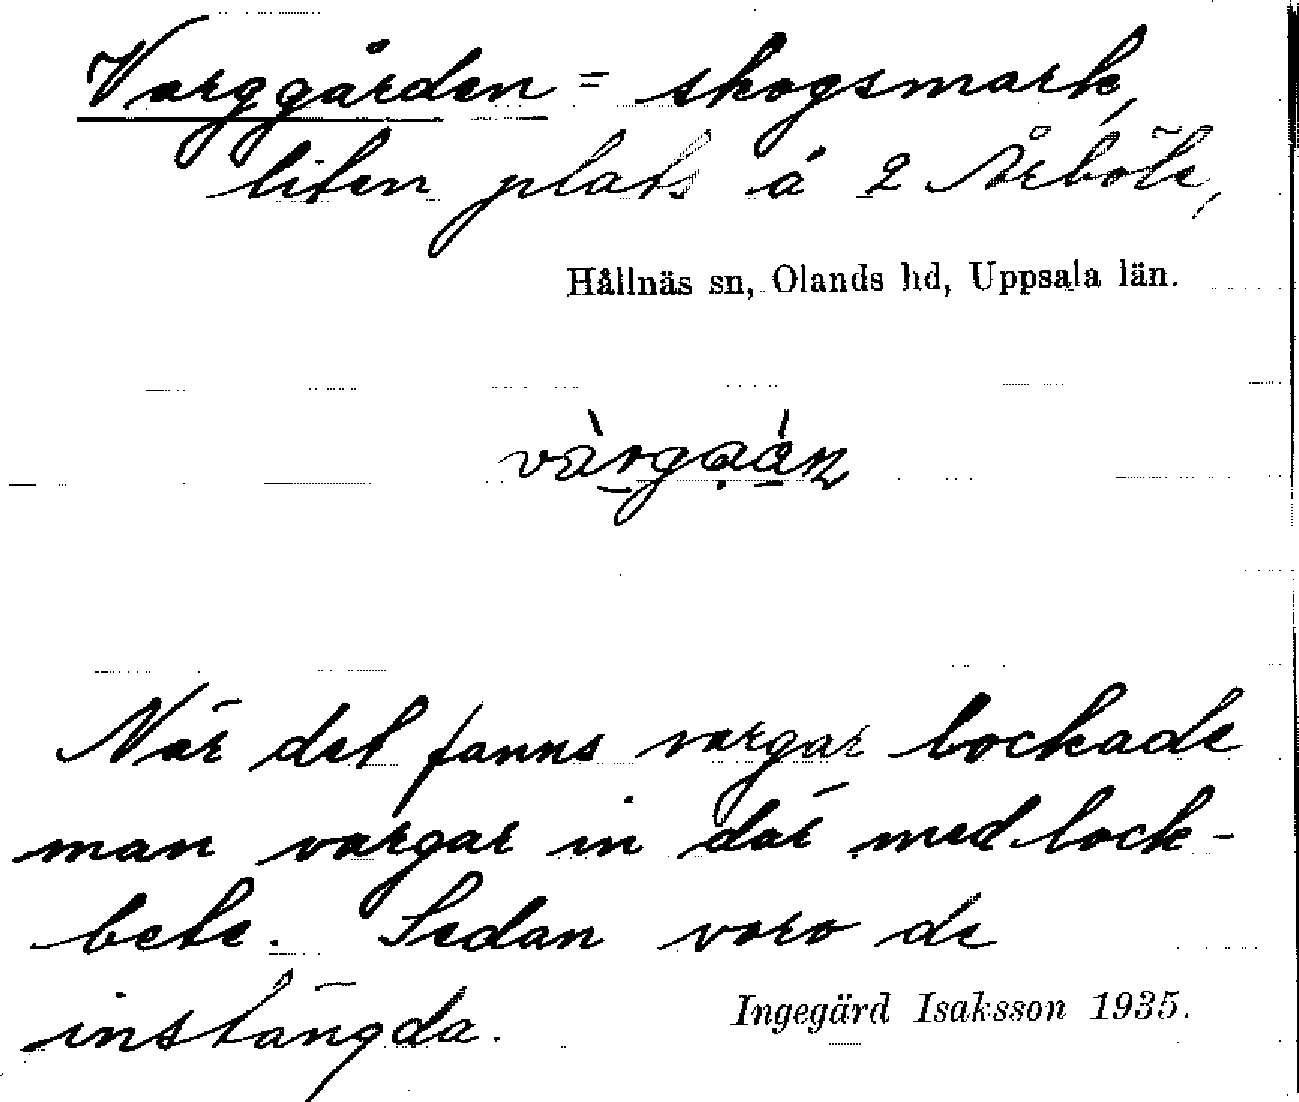 Varggården = skogsmark,
liten plats å 2 Årböle,
Hållnäs sn, Olands hd, Uppsala län.
När det fanns vargar lockade
man vargar in där med lock-
bete. Sedan voro de
instängda.
Ingegärd Isaksson 1935.